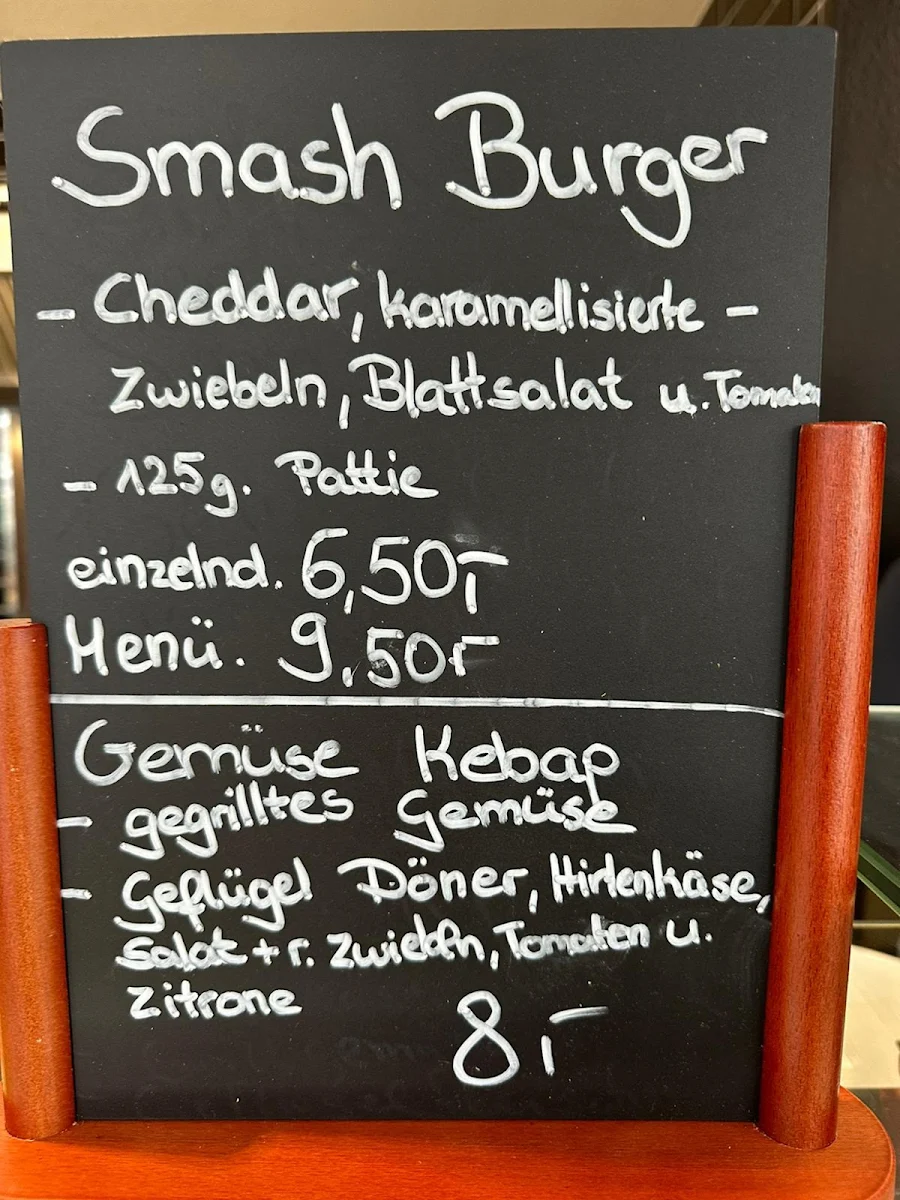 Smash Burger
- Cheddar, karamellisierte -
Zwiebeln, Blattsalat u. Tomaten
- 125g. Pattie
einzelnd. 6,50,-
Menü. 9,50,-
Gemüse Kebap
- gegrilltes Gemüse
- Geflügel Döner, Hirtenkäse,
Salat + r. Zwiebeln, Tomaten u.
Zitrone
8,-